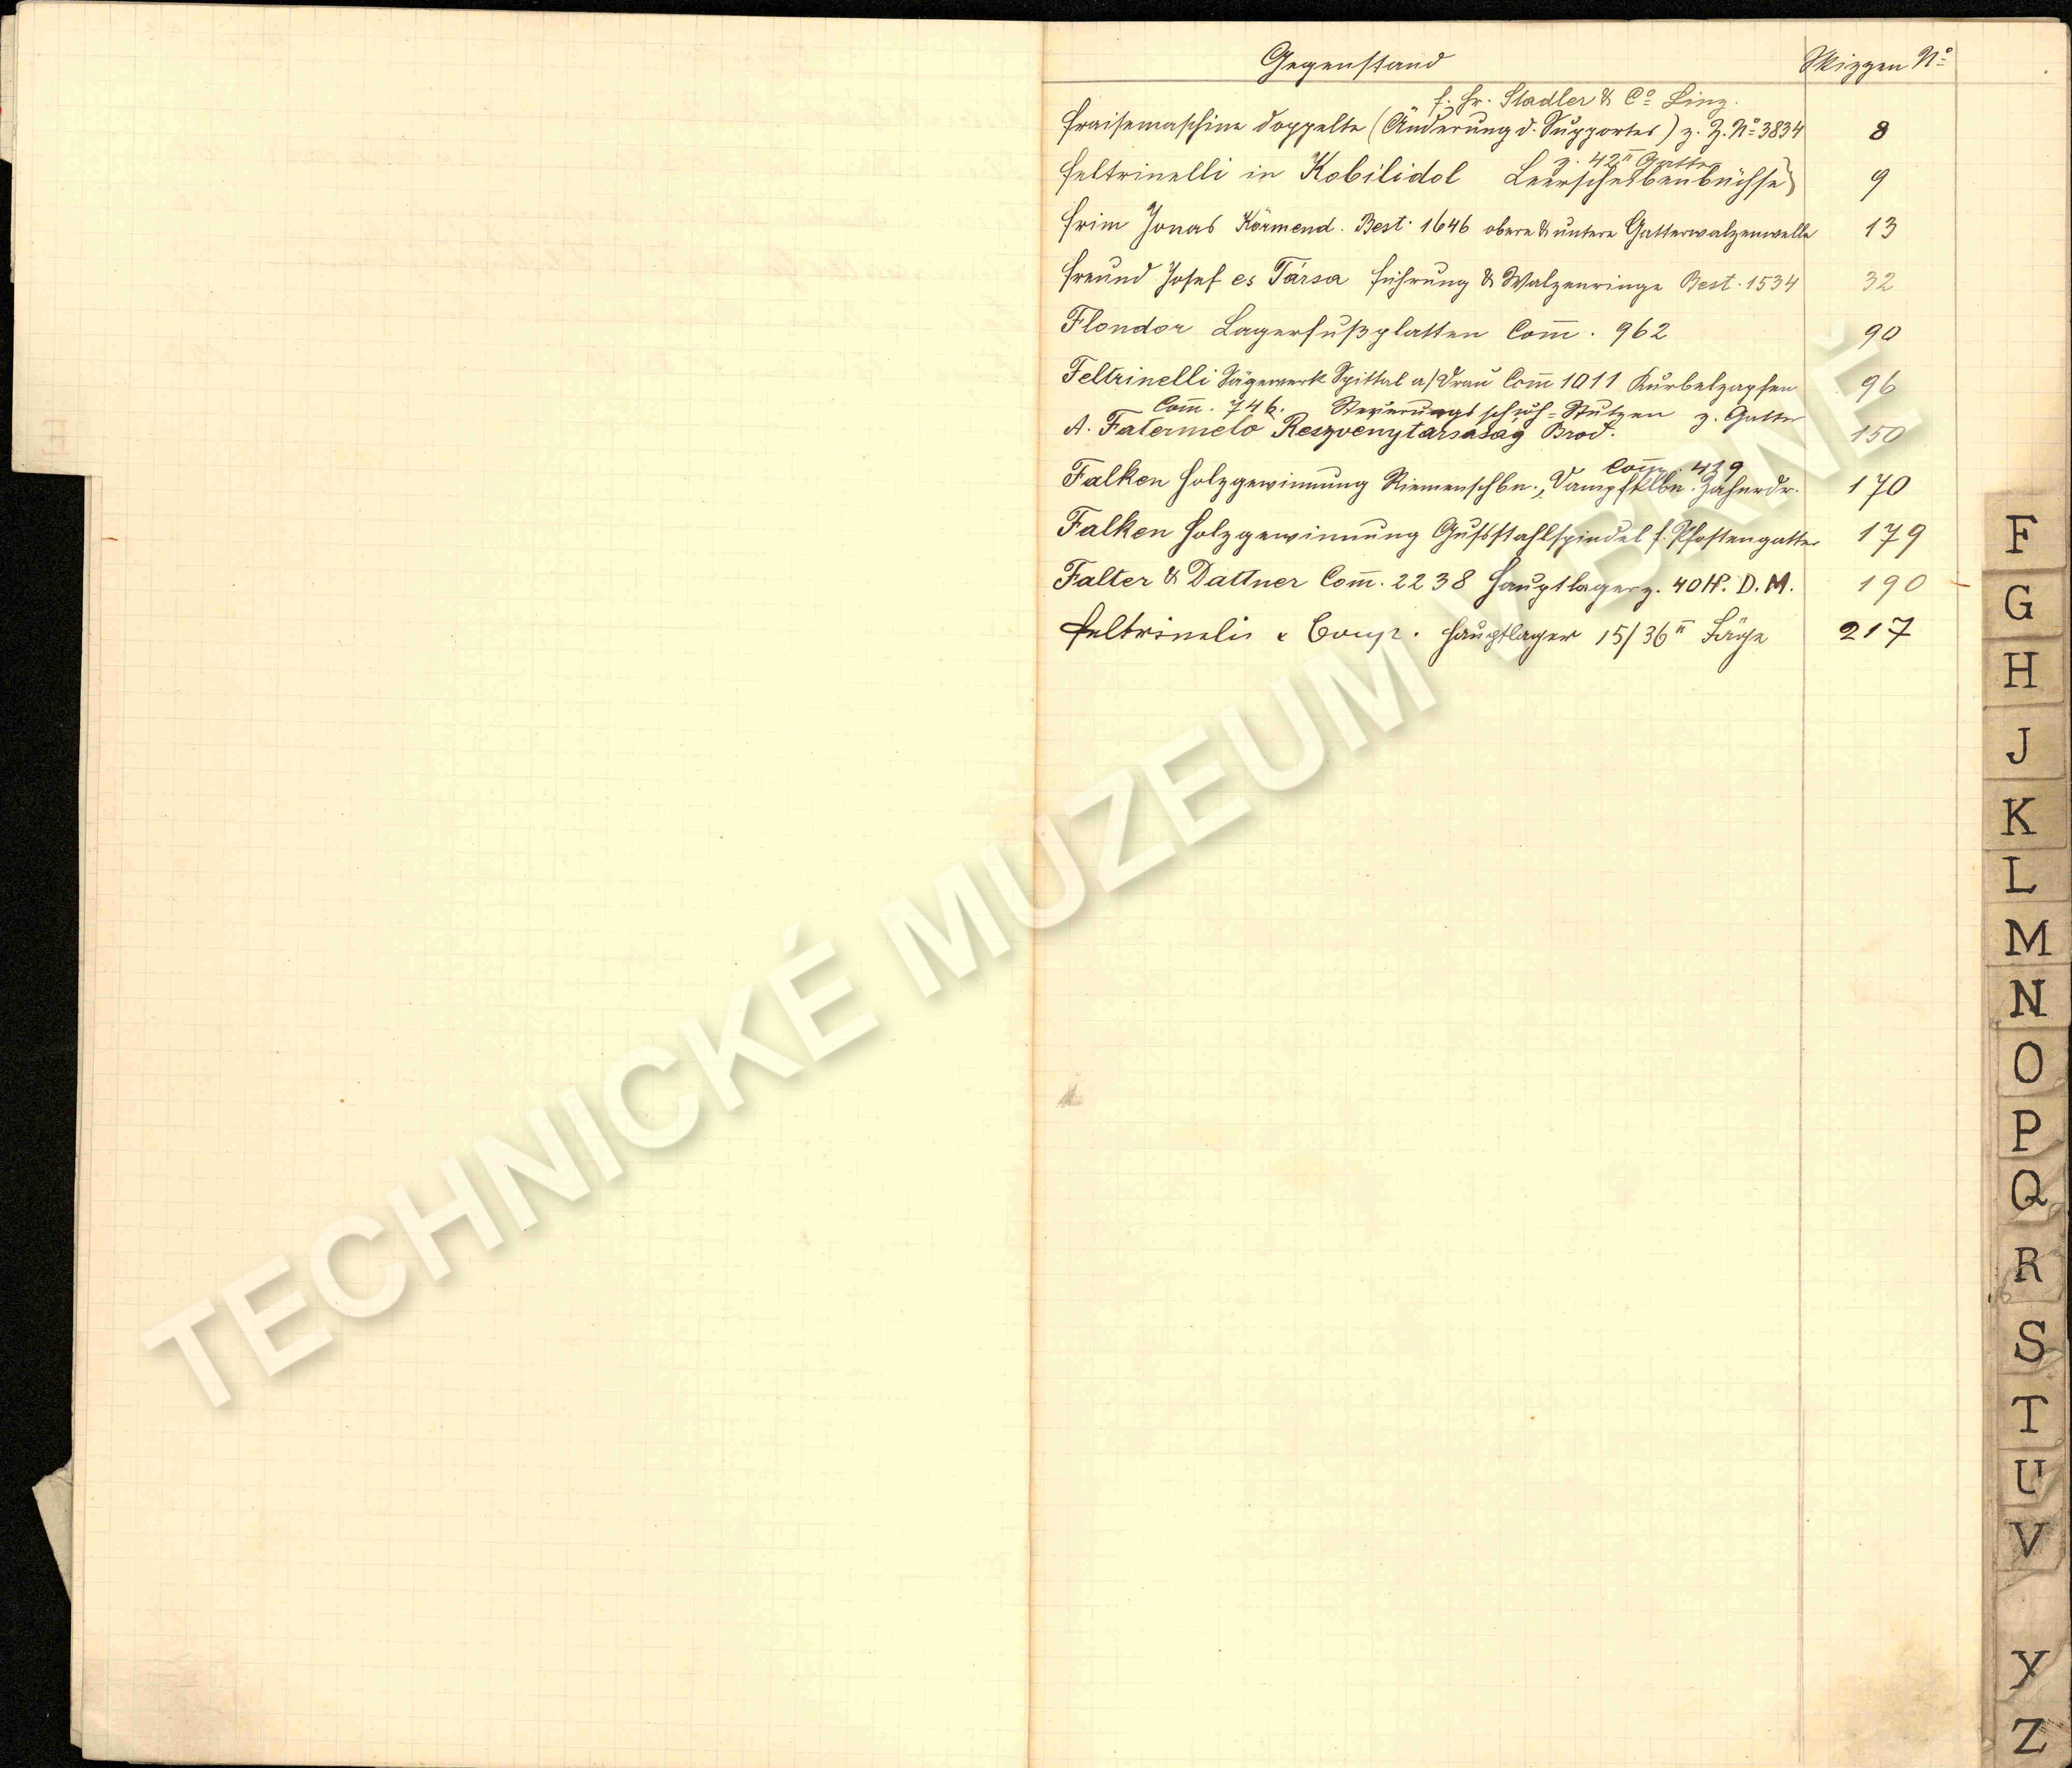 Gegenstand Skizzen Nº
f. Fr. Stadler & Cº Linz.
Fraisemaschine doppelte (Änderung d. Supportes) z. Z. Nº 3834 8
z. 42" Gatter
Feltrinelli in Kobilidol Leerscheibenbüchse} 9
Frim Jonas Körmend. Best. 1646 obere & untere Gatterwalzenwelle 13
Freund Josef es Társa Führung & Walzenringe Best. 1534 32
Flondor Lagerfußplatten Com̅. 962 90
Feltrinelli Sägewerk Spittal a/Drau Com̅ 1011 Kurbelzapfen 96
Com̅. 746. Steuerungsschuh-Stutzen z. Gatter
A. Fatermelö Reszvenytarsaság Brod. 150
Com̅. 419
Falken Holzgewinnung Riemenschbn., 170
Falken Holzgewinnung Gussstahlspindel f. Pfostengatter 179
Falter & Dattner Com̅. 2238 Hauptlager z. 40 H. D. M. 190
Feltrinelis & Comp. Hauptlager 15/36" Säge 217
F
G
H
J
K
L
M
N
O
P
Q
R
S
T
U
V
Y
Z
TECHNICKÉ MUZEUM V BRNĚ